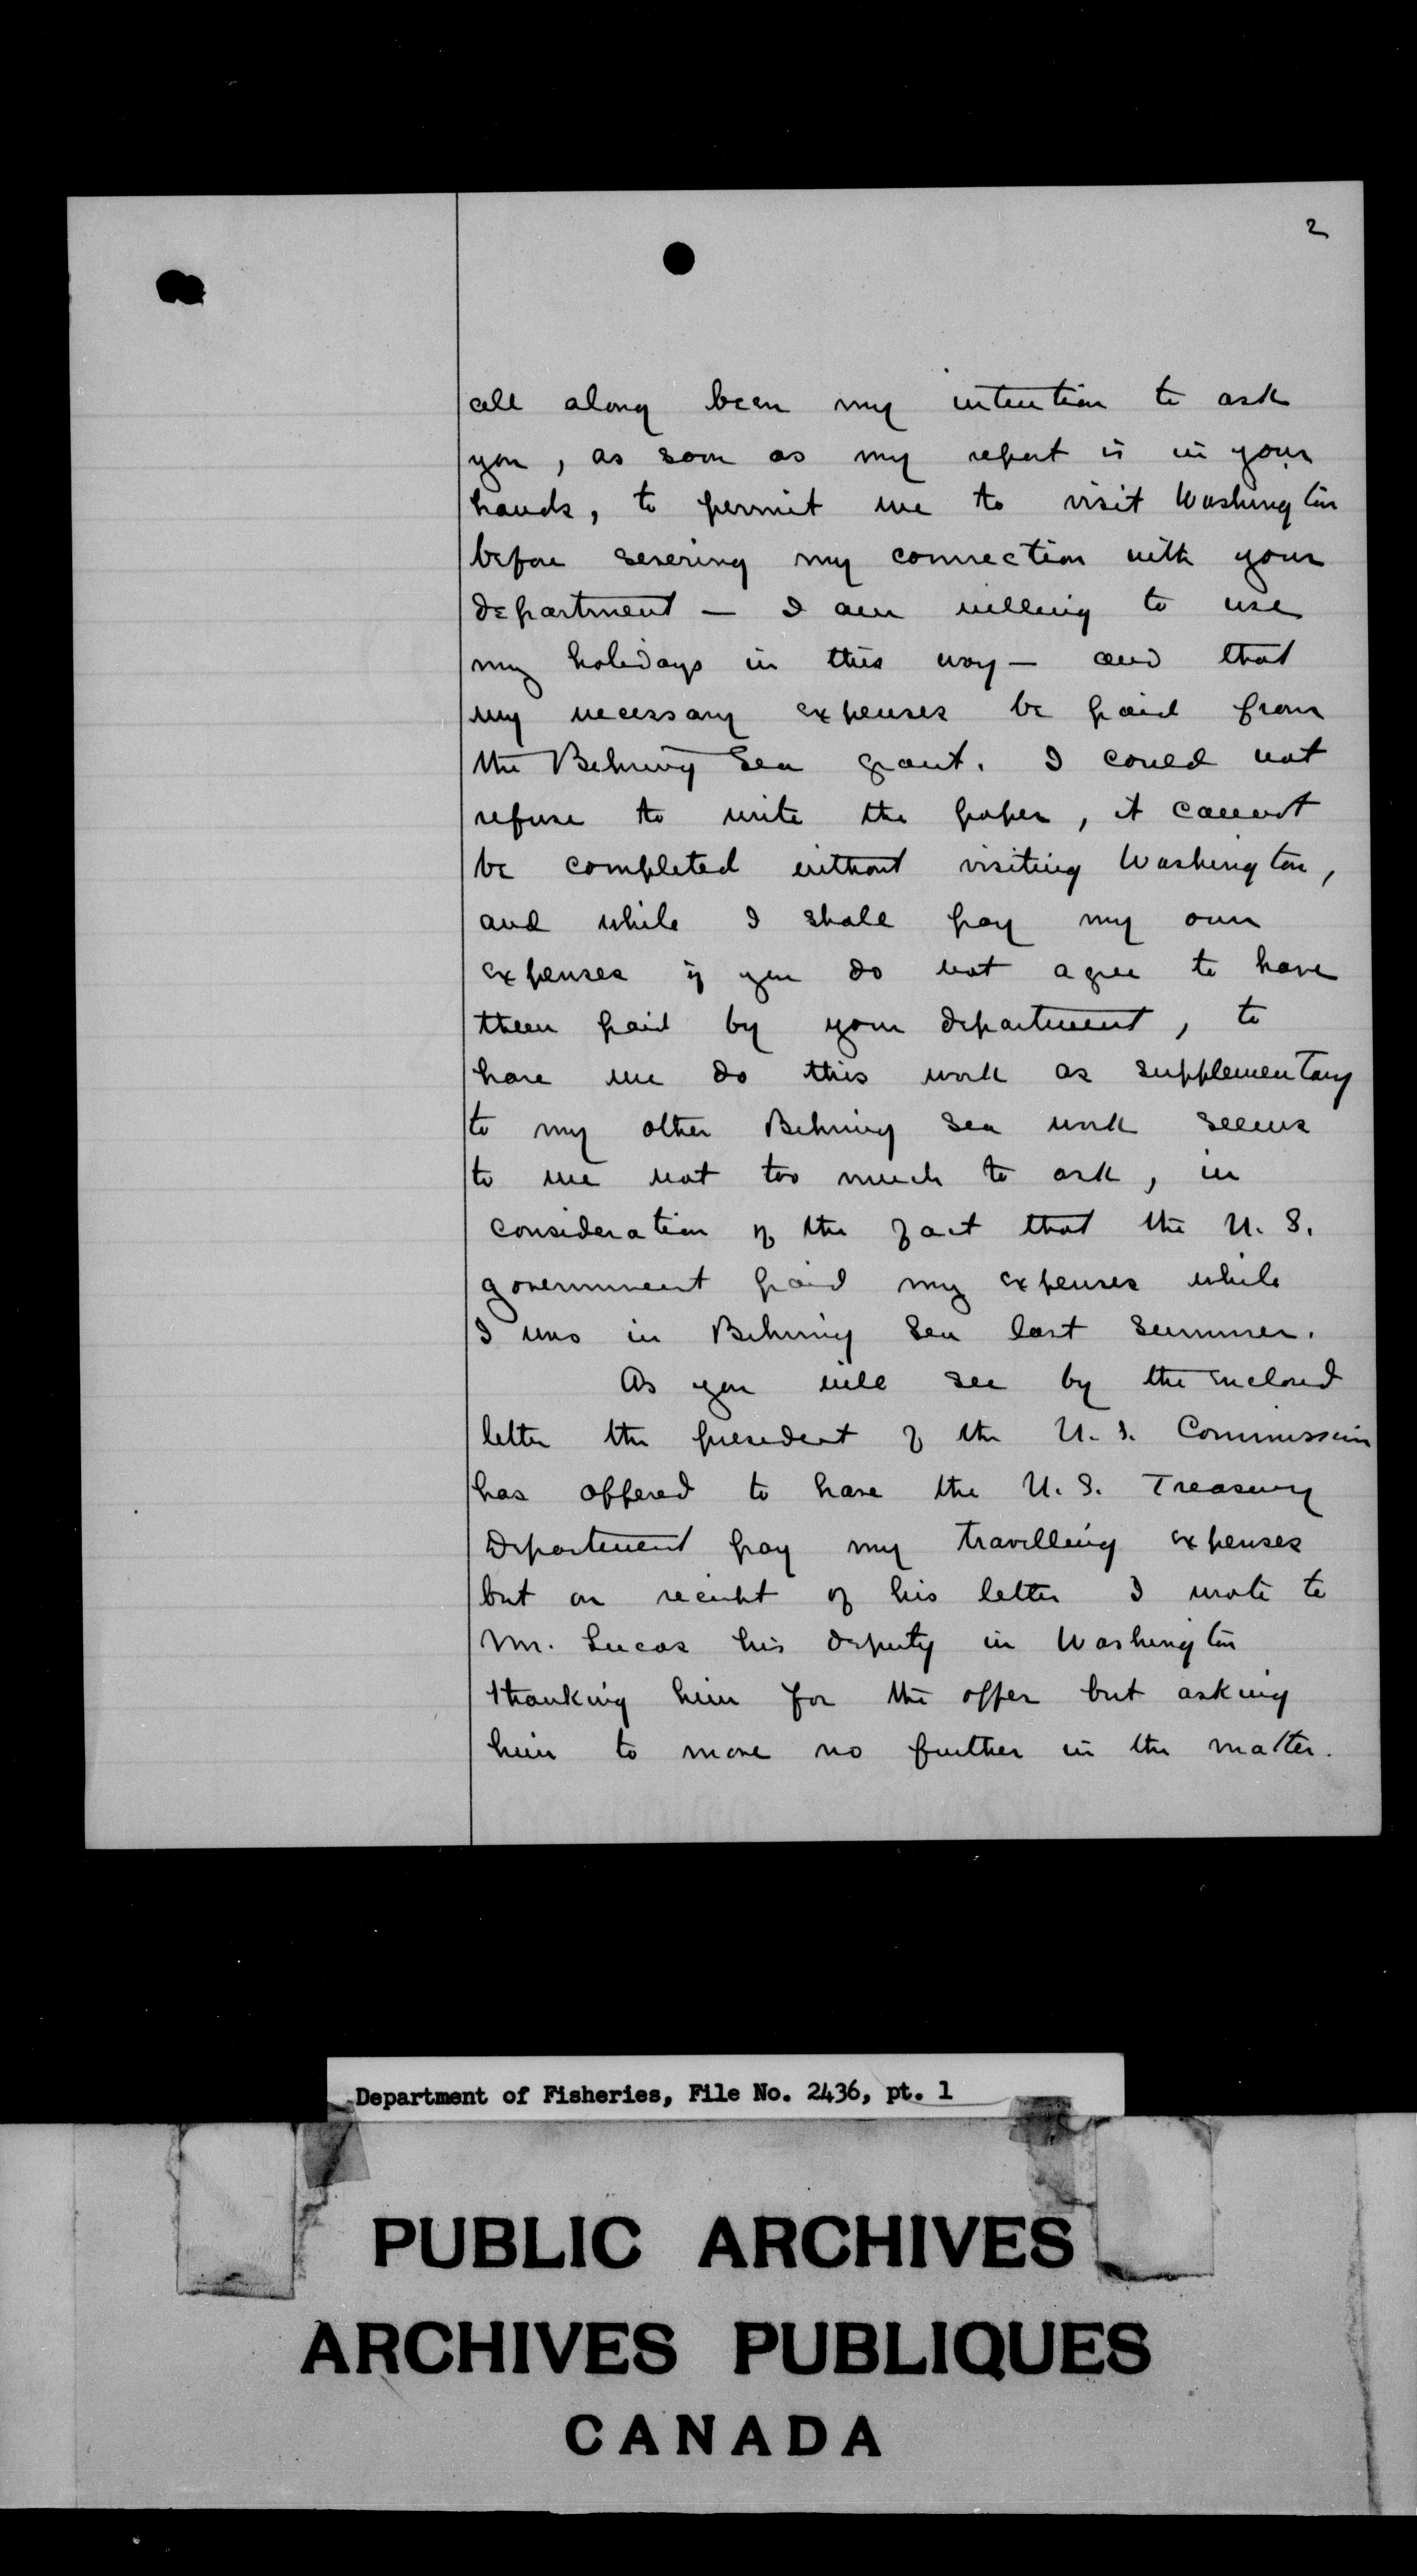 2
all along been my intention to ask
you, as soon as my report is in your
hands, to permit me to visit Washington
before severing my connection with your
department — I am willing to use
my holidays in this way — and that
my necessary expenses be paid from
the Behring Sea grant. I could not
refuse to write the paper, it cannot
be completed without visiting Washington,
and while I shall pay my own
expenses if you do not agree to have
them paid by your department, to
have me do this work as supplementary
to my other Behring Sea work seems
to me not too much to ask, in
consideration of the fact that the U. S.
government paid my expenses while
I was in Behring Sea last summer.
As you will see by the enclosed
letter the president of the U. S. Commission
has offered to have the U. S. Treasury
Department pay my travelling expenses
but on receipt of his letter I wrote to
Mr. Lucas his deputy in Washington
thanking him for the offer but asking
him to move no further in the matter.
Department of Fisheries, File No. 2436, pt. 1
PUBLIC ARCHIVES
ARCHIVES PUBLIQUES
CANADA